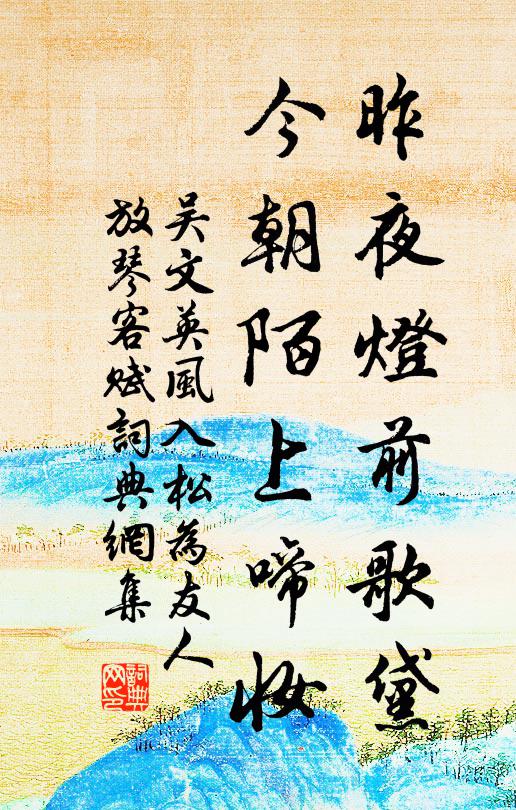 昨夜燈前歌黛
今朝陌上啼妝
吴文英風入松為友人
放琴客賦詞典網集
詞典
网印